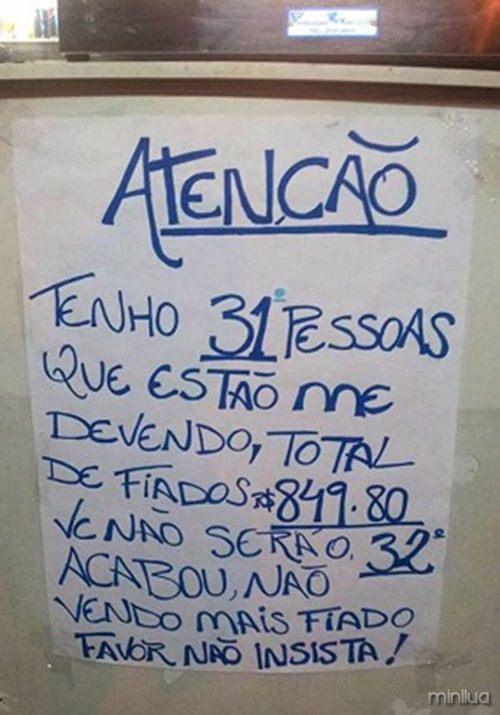 ATENÇÃO
TENHO 31º PESSOAS
QUE ESTÃO ME
DEVENDO, TOTAL
DE FIADOS R$ 849.80
VC NÃO SERÁ O 32º
ACABOU, NÃO
VENDO MAIS FIADO
FAVOR NÃO INSISTA!
minilua